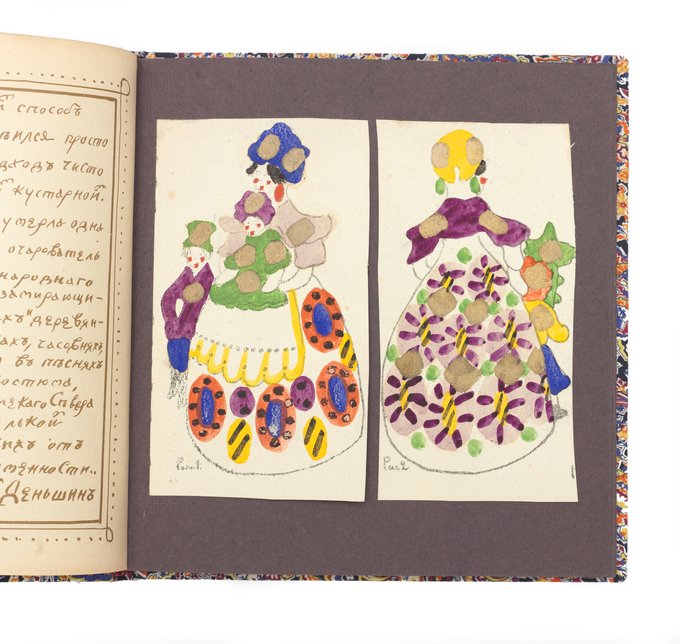 й способъ
вился просто
дходъ чисто
й кустарной.
умерла одна
очарователь
народнаго
замирающи-
ахъ" деревян-
вахъ, часовняхъ,
въ пѣсняхъ
костюма,
лекаго Сѣвера
лькой
ихъ отъ
менности..
Деньшинъ
Рис 1.
Рис 2